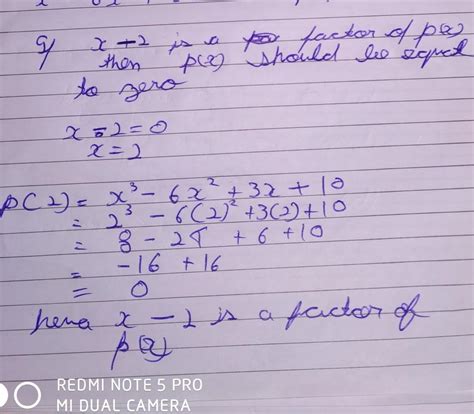 If x-2 is a factor of p(x)
then p(x) should be equal
to zero
x-2=0
x=2
p(2)= x³ - 6x² + 3x + 10
= 2³ - 6(2)² + 3(2) + 10
= 8 - 24 + 6 + 10
= -16 + 16
= 0
hence x - 2 is a factor of
p(x)
REDMI NOTE 5 PRO
MI DUAL CAMERA